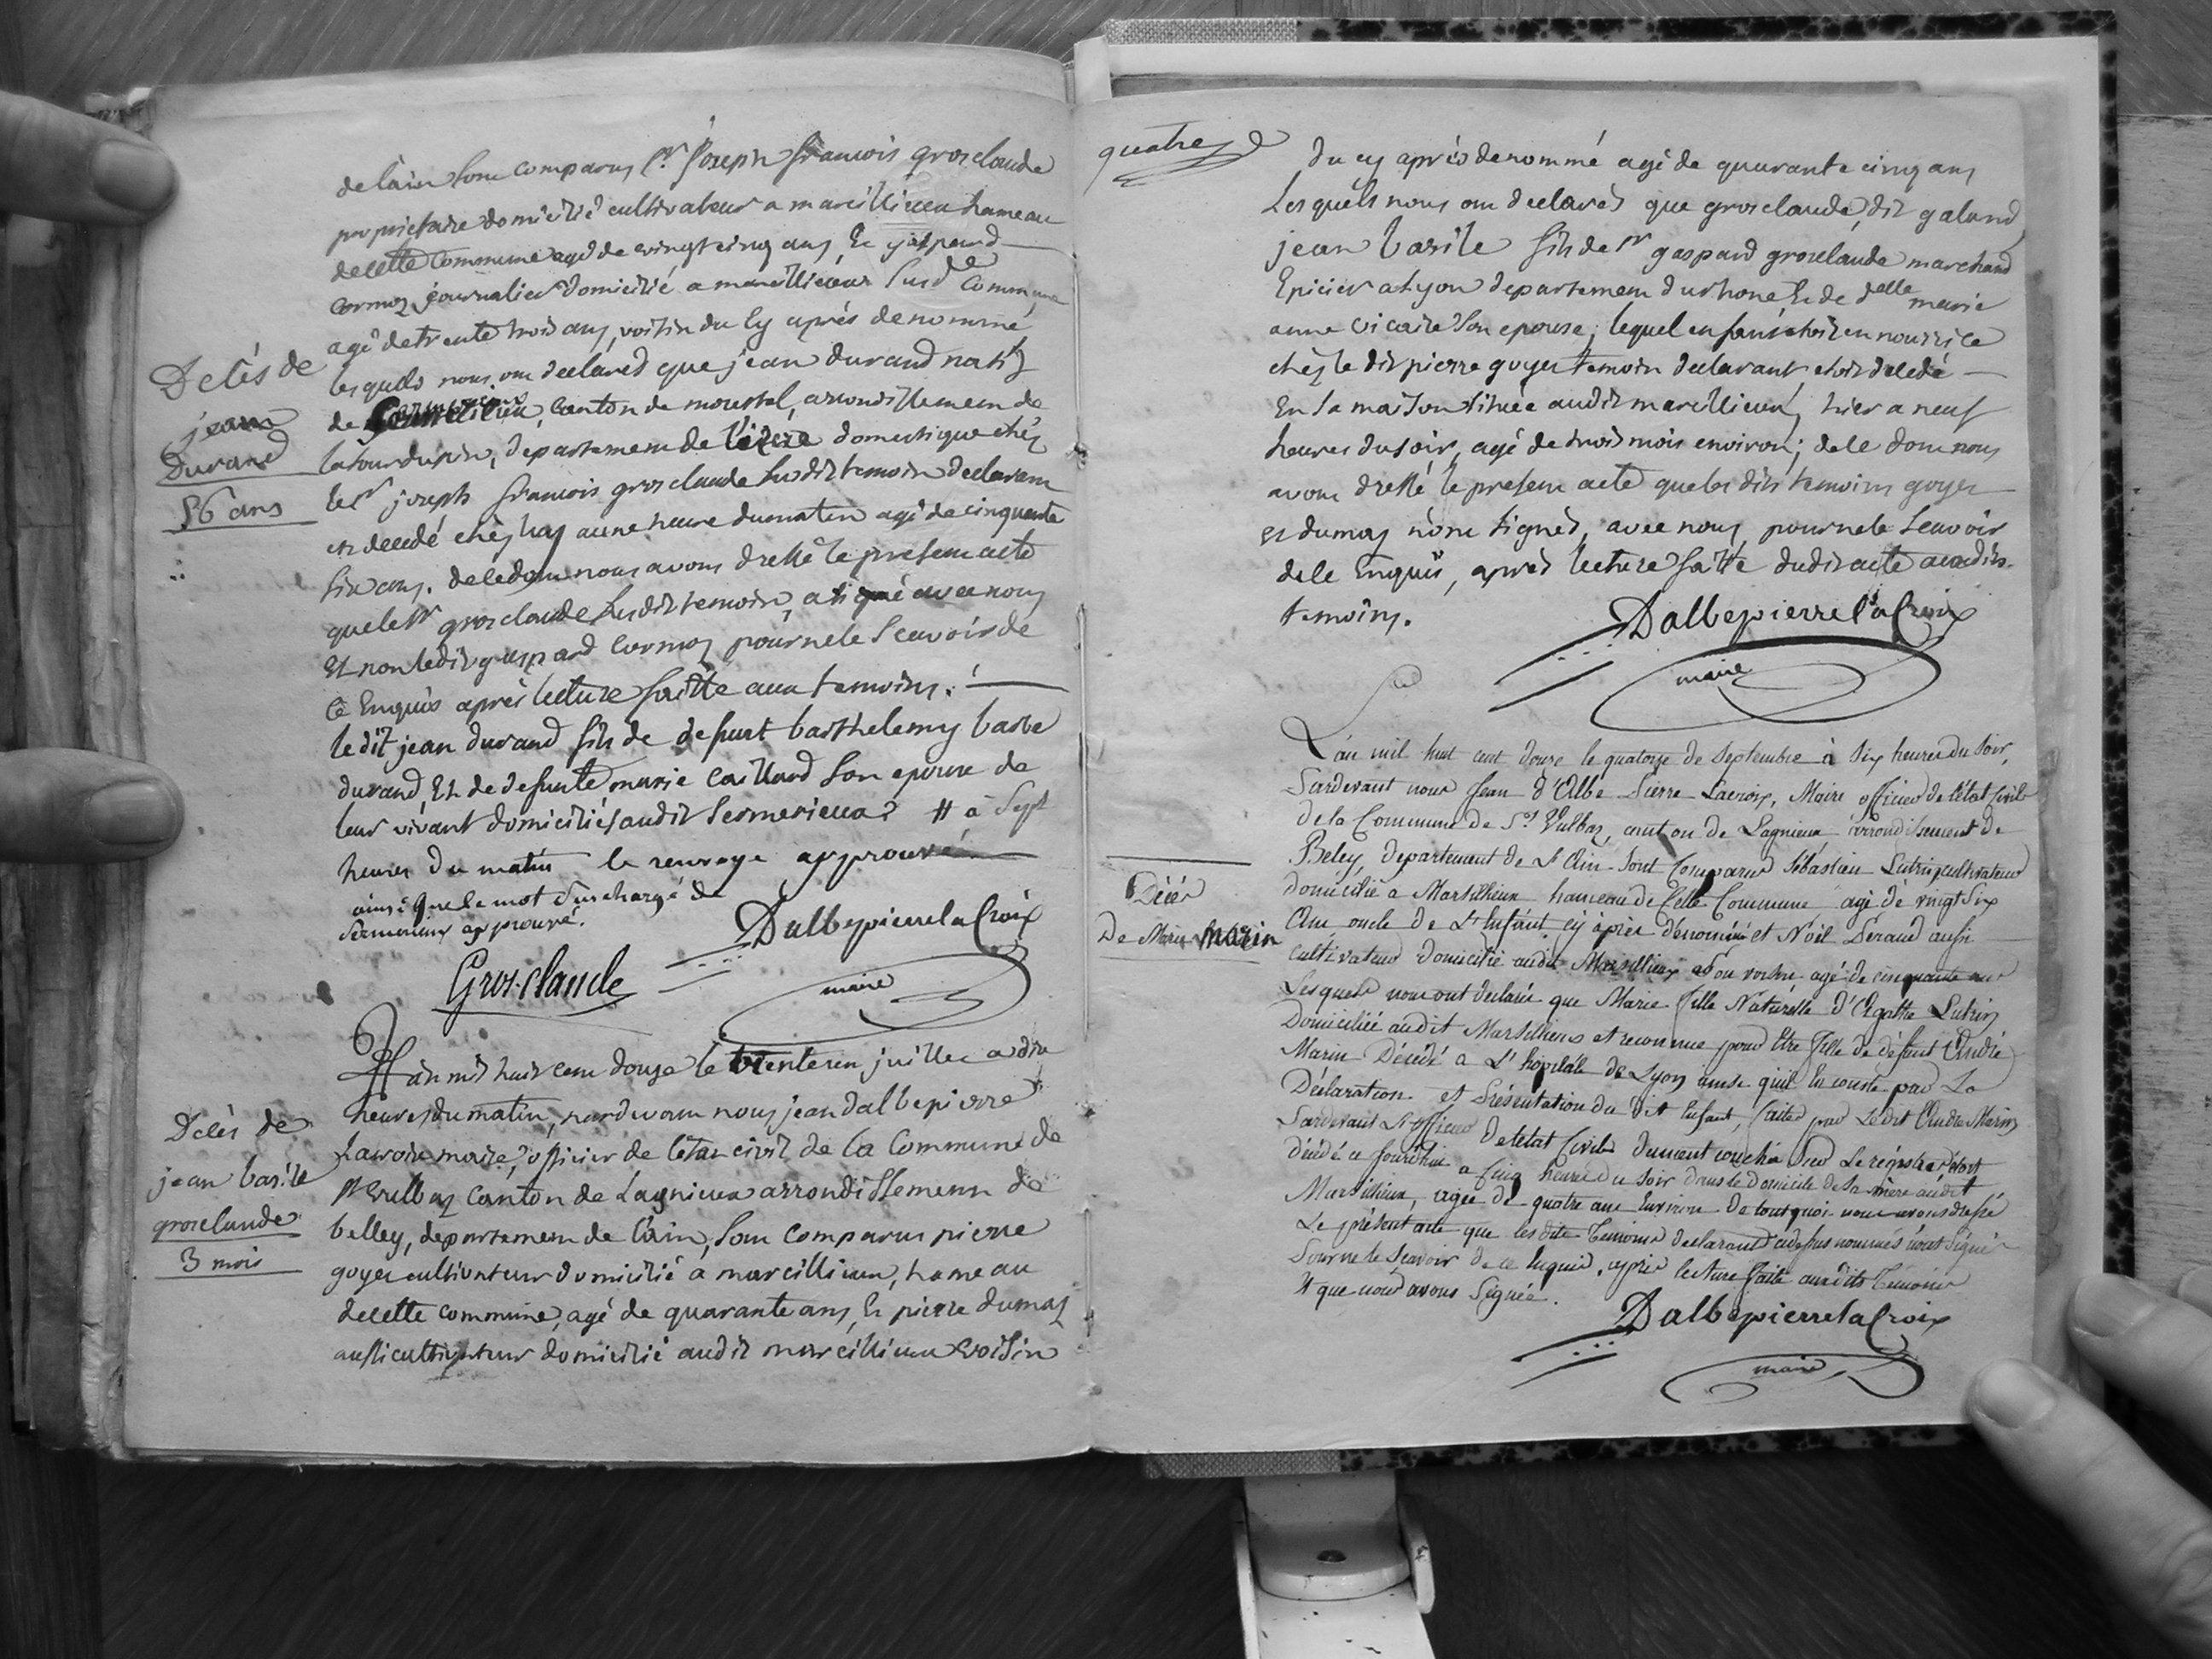 de lain sont comparus Sr. joseph francois grosclaude
propriétaire domicilié cultivateur a marcillieu hameau
de cette Commune agé de vingt cinq ans Et gaspard
cormoz journalier domicilié a marcillieux susde Commune
agé de trente trois ans, voisin du cy après denommé
lesquels nous ont declarés que jean durand natif
de canton de morestel, arrondissement de
latourdupin, departement de l'izere domestique chéz
le Sr joseph francois grosclaude susdit temoin declarant
est decedé chéz luy a une heure du matin agé de cinquante
six ans. de ce dont nous avons dressé le present acte
que le Sr grosclaude susdit temoin, a signé avec nous
Et non ledit gaspard cormoz pour ne le scavoir de
ce Enquis après lecture faitte aux temoins.
Decès de
jean
Durand
56 ans
le dit jean durand fils de defunt barthelemy barbe
durand, Et de defunte marie caillard son epouse de
leur vivant domiciliés audit sermerieux? # à Sept
heures du matin le renvoye approuvé
ainsi que le mot surchargé de
Sermerieux approuvé.
Dalbepierrelacroix
maire
Grosclaude
L'an mil huit cent douze le trente un juillet a dix
heures du matin, pardevant nous jean dalbepierre
Lacroix maire, officier de létat civil de la Commune de
St Vulbaz Canton de Lagnieux arrondissement de
belley, departement de lain, sont comparus pierre
goyer cultivateur domicilié a marcillieux, hameau
de cette commune, agé de quarante ans, Et pierre dumas
aussi cultivateur domicilié audit marcillieu voisin
Decès de
jean bazile
grosclaude
3 mois
quatre
du cy après denommé agé de quarante cinq ans
Lesquels nous ont declarés que grosclaude, dit galand
jean bazile fils de Sr gaspard grosclaude marchand
Epicier a Lyon departement du rhone Et de delle marie
anne vicaire son epouse, lequel enfant étoit en nourrice
chéz le dit pierre goyer temoin declarant, étoit decedé
En sa maison située audit marcillieux, hier a neuf
heures du soir, agé de trois mois environ; de ce dont nous
avons dressé le present acte que les dits temoins goyer
et dumas n'ont signés, avec nous, pour ne le scavoir
de ce Enquis, après lecture faitte dudit acte auxdits
temoins.
Dalbepierrelacroix
maire
L'an mil huit cent douze le quatorze de Septembre à Six heures du Soir,
Pardevant nous Jean d'Albe Pierre Lacroix, Maire officier de l'état Civil
de la Commune de St Vulbaz, canton de Lagnieux arrondissement de
Beley, departement de L'Ain Sont Comparus Sébastien Lutrin, cultivateur
domicilié a Marsillieux hameau de Cette Commune agé de vingt Six
Ans oncle de L'Enfant cy après dénommé et Noël Peraud aussi
Cultivateur domicilié audit Marsillieux et Son voisin agé de cinquante ans
Lesquels nous ont declaré que Marie fille Naturelle d'Agathe Lutrin
Domiciliée audit Marsillieux et reconnue pour Etre fille de défunt André
Marin Décédé a L'hopital de Lyon ainsi qu'il En conste par La
Déclaration et Présentation du dit Enfant, faites par Ledit André Marin
Pardevant L'officier de l'état Civil dument couché Sur Le régistre étoit
décédé ce jourd'hui a Cinq heures du Soir dans le domicile de Sa mère audit
Marsillieux, agée de quatre ans Environ De tout quoi nous avons dressé
Le présent acte que les dits Témoins declarant cidessus nommés n'ont Signé
Pour ne le Scavoir de ce Enquis, après lecture faite auxdits Témoins
Et que nous avons Signé.
Décès
De Marie Marin
Dalbepierrelacroix
maire